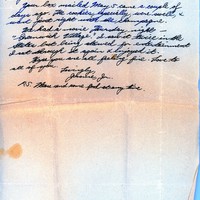 Your box mailed May 5 came a couple of
days ago. The cookies, especially, were swell, &
went just right with the champagne.
Worked a movie Thursday night -
"Greenwich Village". I saw it twice in the
States but being starved for entertainment
I sat through it again & enjoyed it.
Hope you are all feeling fine. Love to
all of you
Lovingly,
Johnnie Jr.
P.S. Mom and